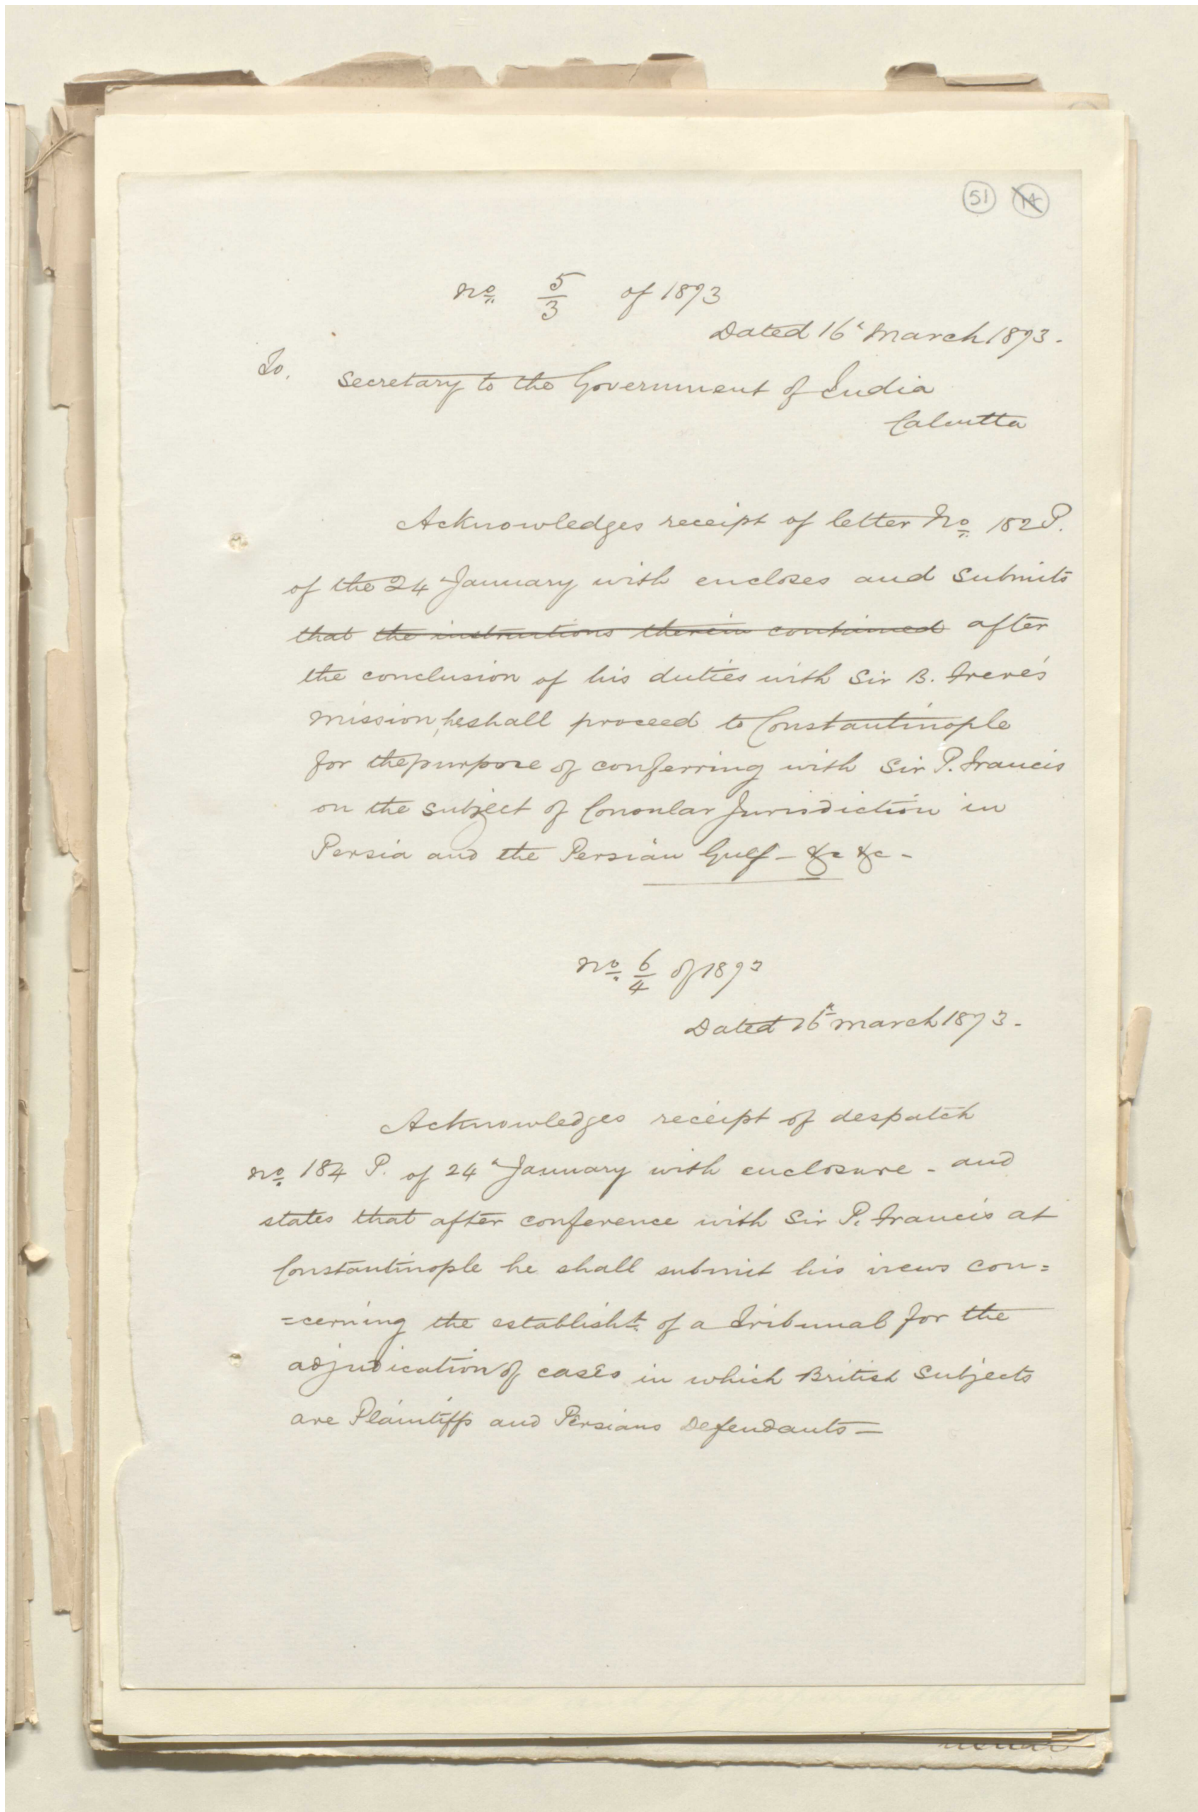 51 14
No. 5/3 of 1873
Dated 16th March 1873.
To.
Secretary to the Government of India
Calcutta
Acknowledges receipt of letter No. 182 P.
of the 24th January with encloses and submits
that the instructions therein contained after
the conclusion of his duties with Sir B. Frere's
Mission, he shall proceed to Constantinople
for the purpose of conferring with Sir P. Francis
on the subject of Consular Jurisdiction in
Persia and the Persian Gulf - &c &c -
No. 6/4 of 1873
Dated 16th March 1873.
Acknowledges receipt of despatch
No. 184 P. of 24th January with enclosure - and
states that after conference with Sir P. Francis at
Constantinople he shall submit his views con=
=cerning the establisht. of a Tribunal for the
adjudication of cases in which British Subjects
are Plaintiffs and Persians Defendants -